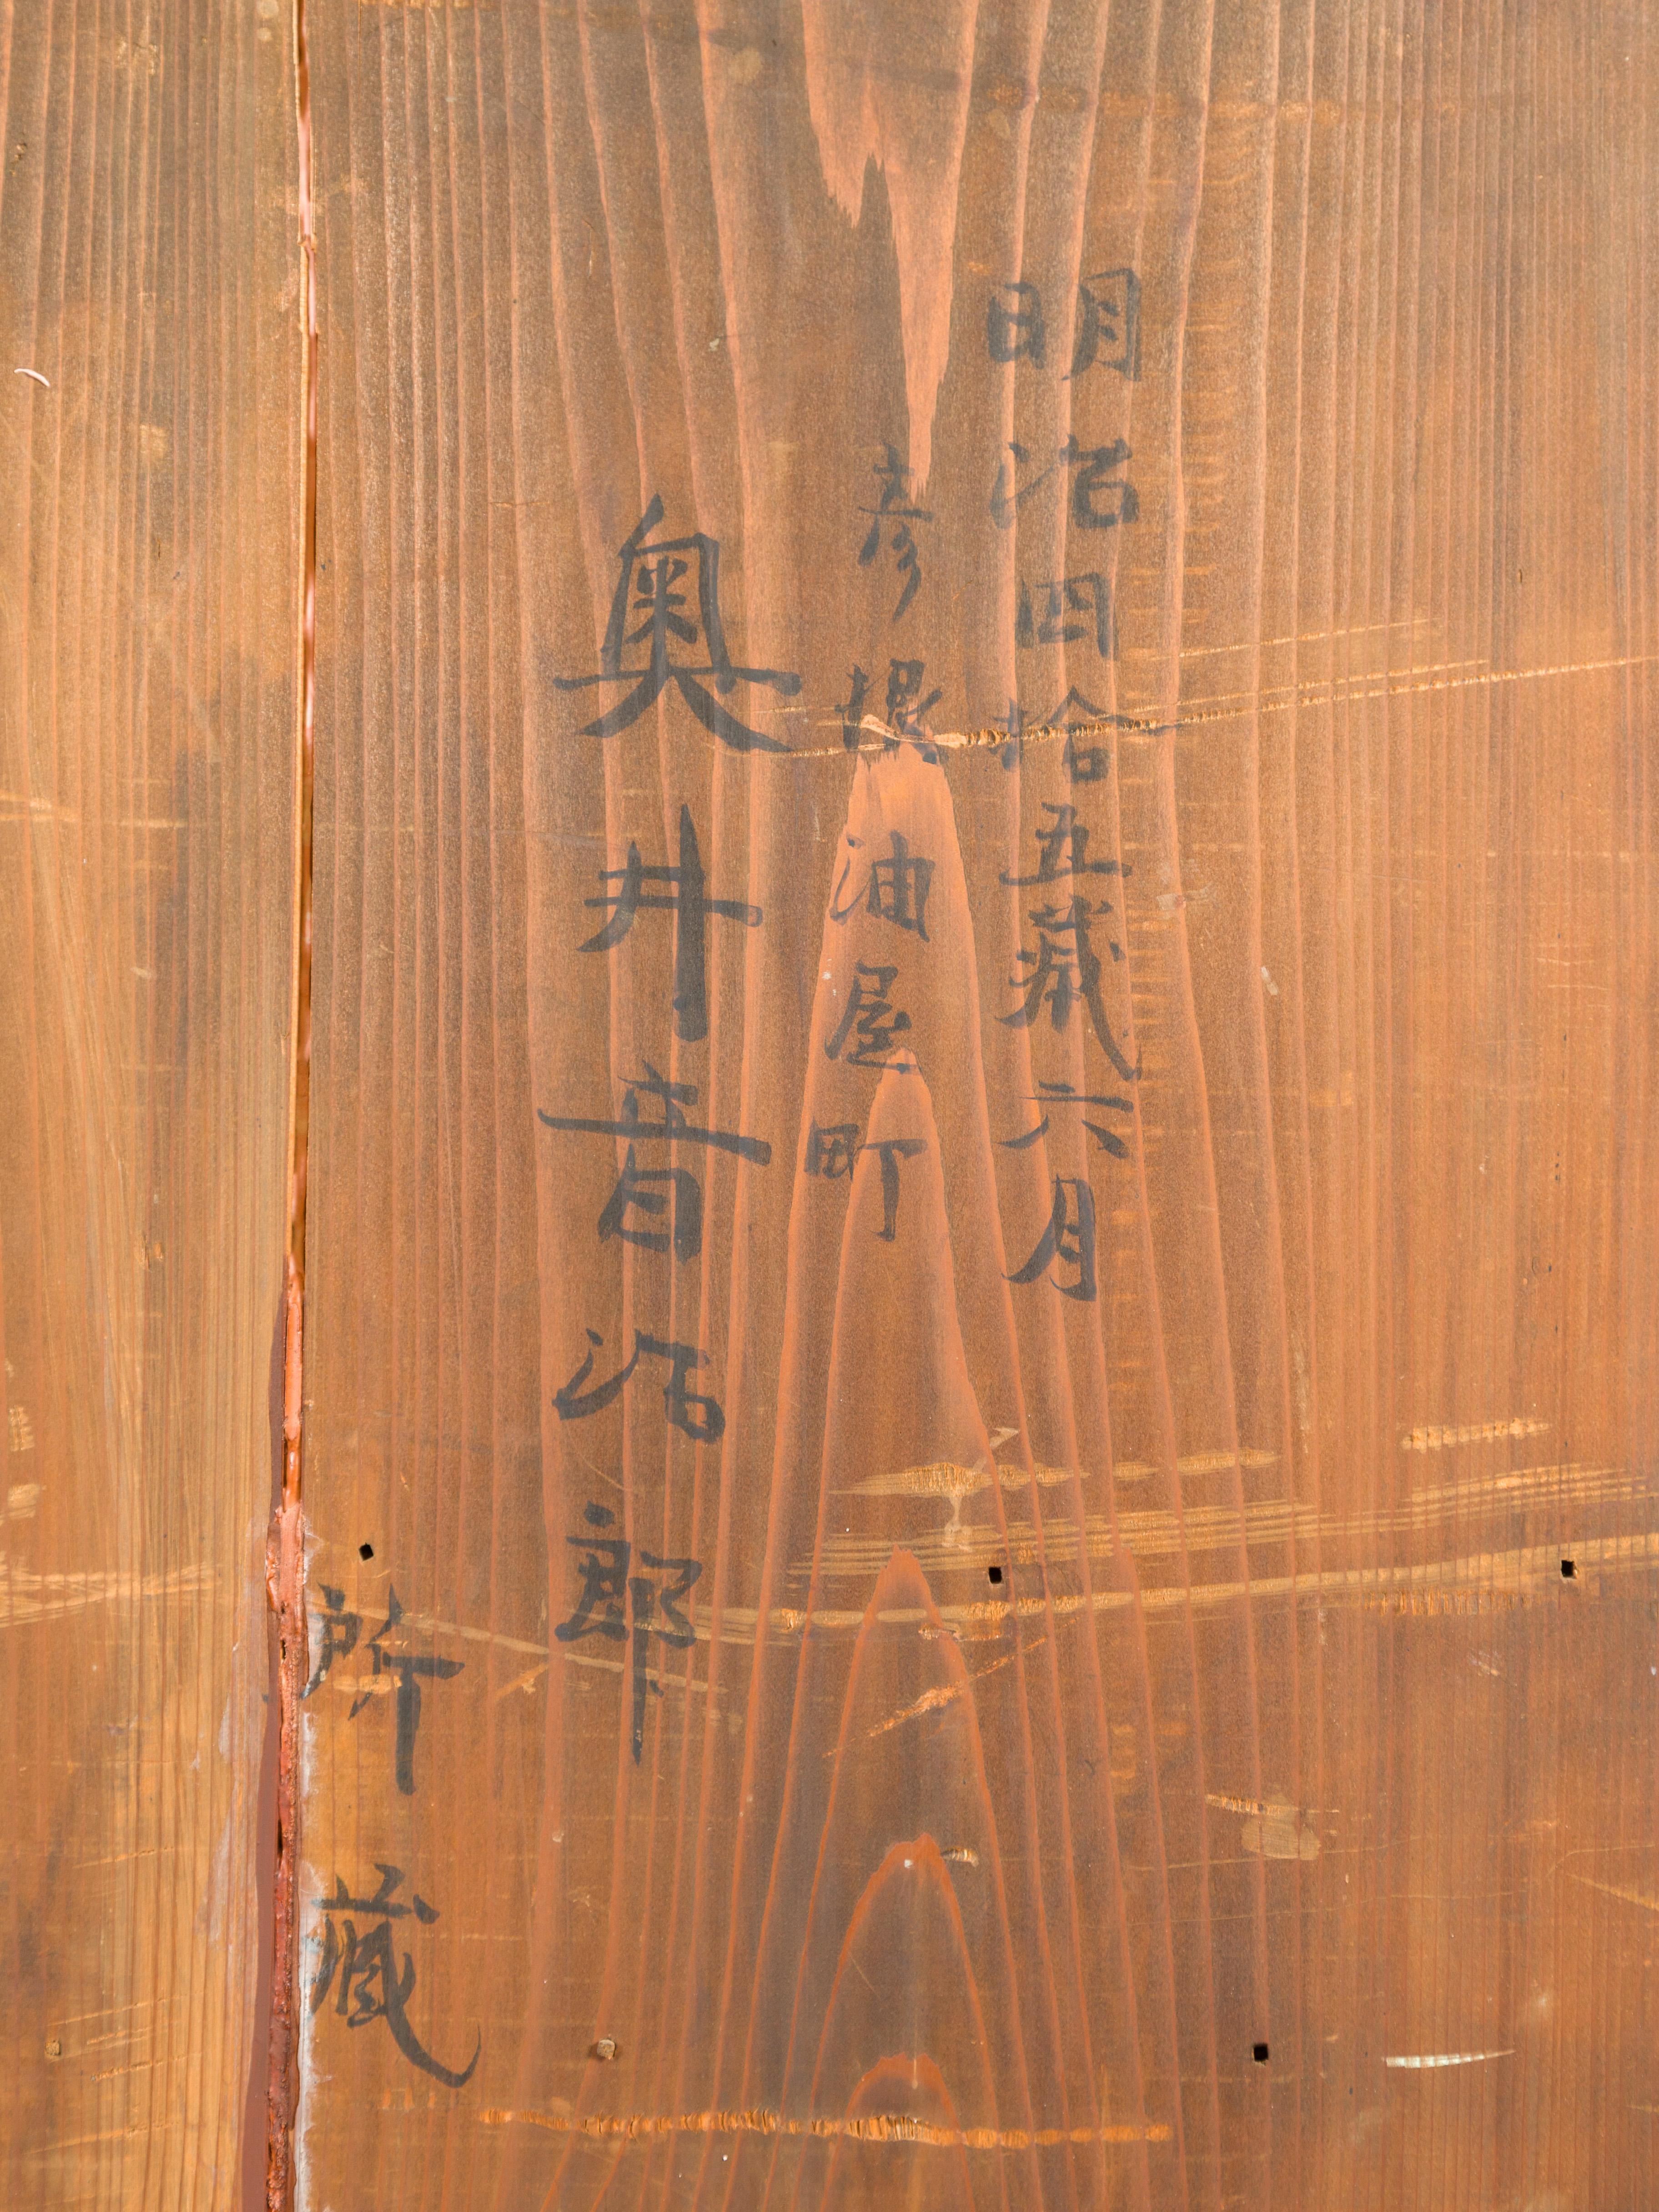 明治四拾五歳六月
彦根油屋町
奥井音治郎
所蔵